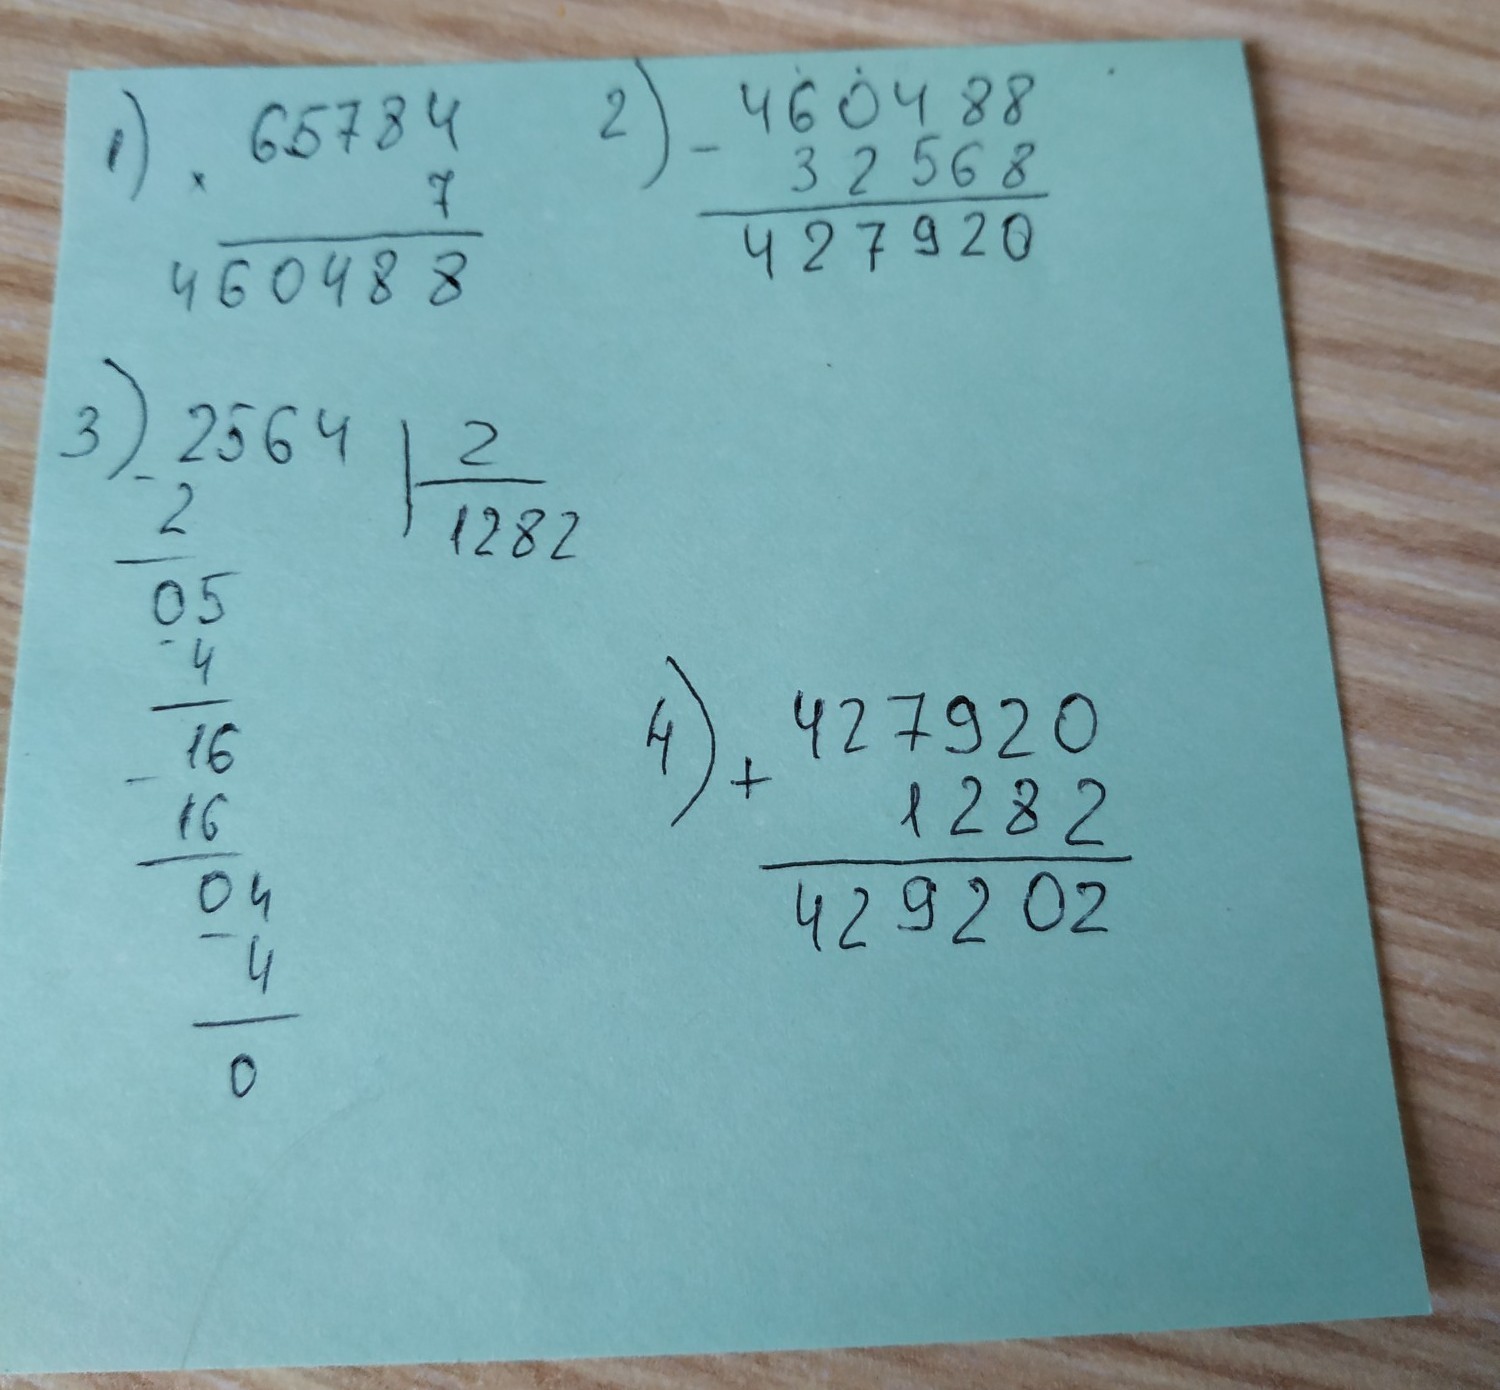 1) × 65784
7
460488
2) - 460488
32568
427920
3) - 2564 | 2
2 1282
05
- 4
16
- 16
04
- 4
0
4) + 427920
1282
429202